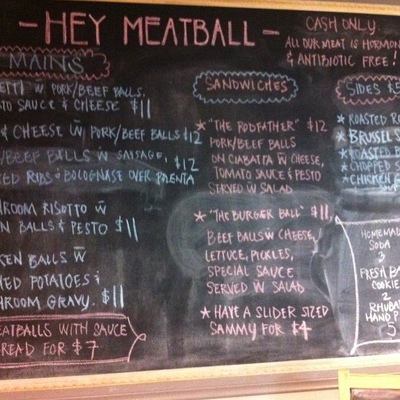 - HEY MEATBALL -
CASH ONLY
ALL OUR MEAT IS HORMON
& ANTIBIOTIC FREE!
MAINS
W̄ PORK/BEEF BALLS,
TO SAUCE & CHEESE $11
& CHEESE W̄ PORK/BEEF BALLS $12
BEEF BALLS W̄ SAUSAGE, $12
ED RIBS & BOLOGNASE OVER POLENTA
HROOM RISOTTO W̄
N BALLS & PESTO $11
KEN BALLS W̄
HED POTATOES &
HROOM GRAVY. $11
EATBALLS WITH SAUCE
READ FOR $7
SANDWICHES
★ "THE RODFATHER" $12
PORK/BEEF BALLS
ON CIABATTA W̄ CHEESE,
TOMATO SAUCE & PESTO
SERVED W̄ SALAD
★ "THE BURGER BALL" $11
BEEF BALLS W̄ CHEESE,
LETTUCE, PICKLES,
SPECIAL SAUCE
SERVED W̄ SALAD
★ HAVE A SLIDER SIZED
SAMMY FOR $4
SIDES $5
★ ROASTED
★ BRUSSEL S
★ ROASTED B
★ CHOPPED S
★ CHICKEN
HOMEMAD
SODA
3
FRESH BA
COOKIE
2
RHUBA
HAND P
5